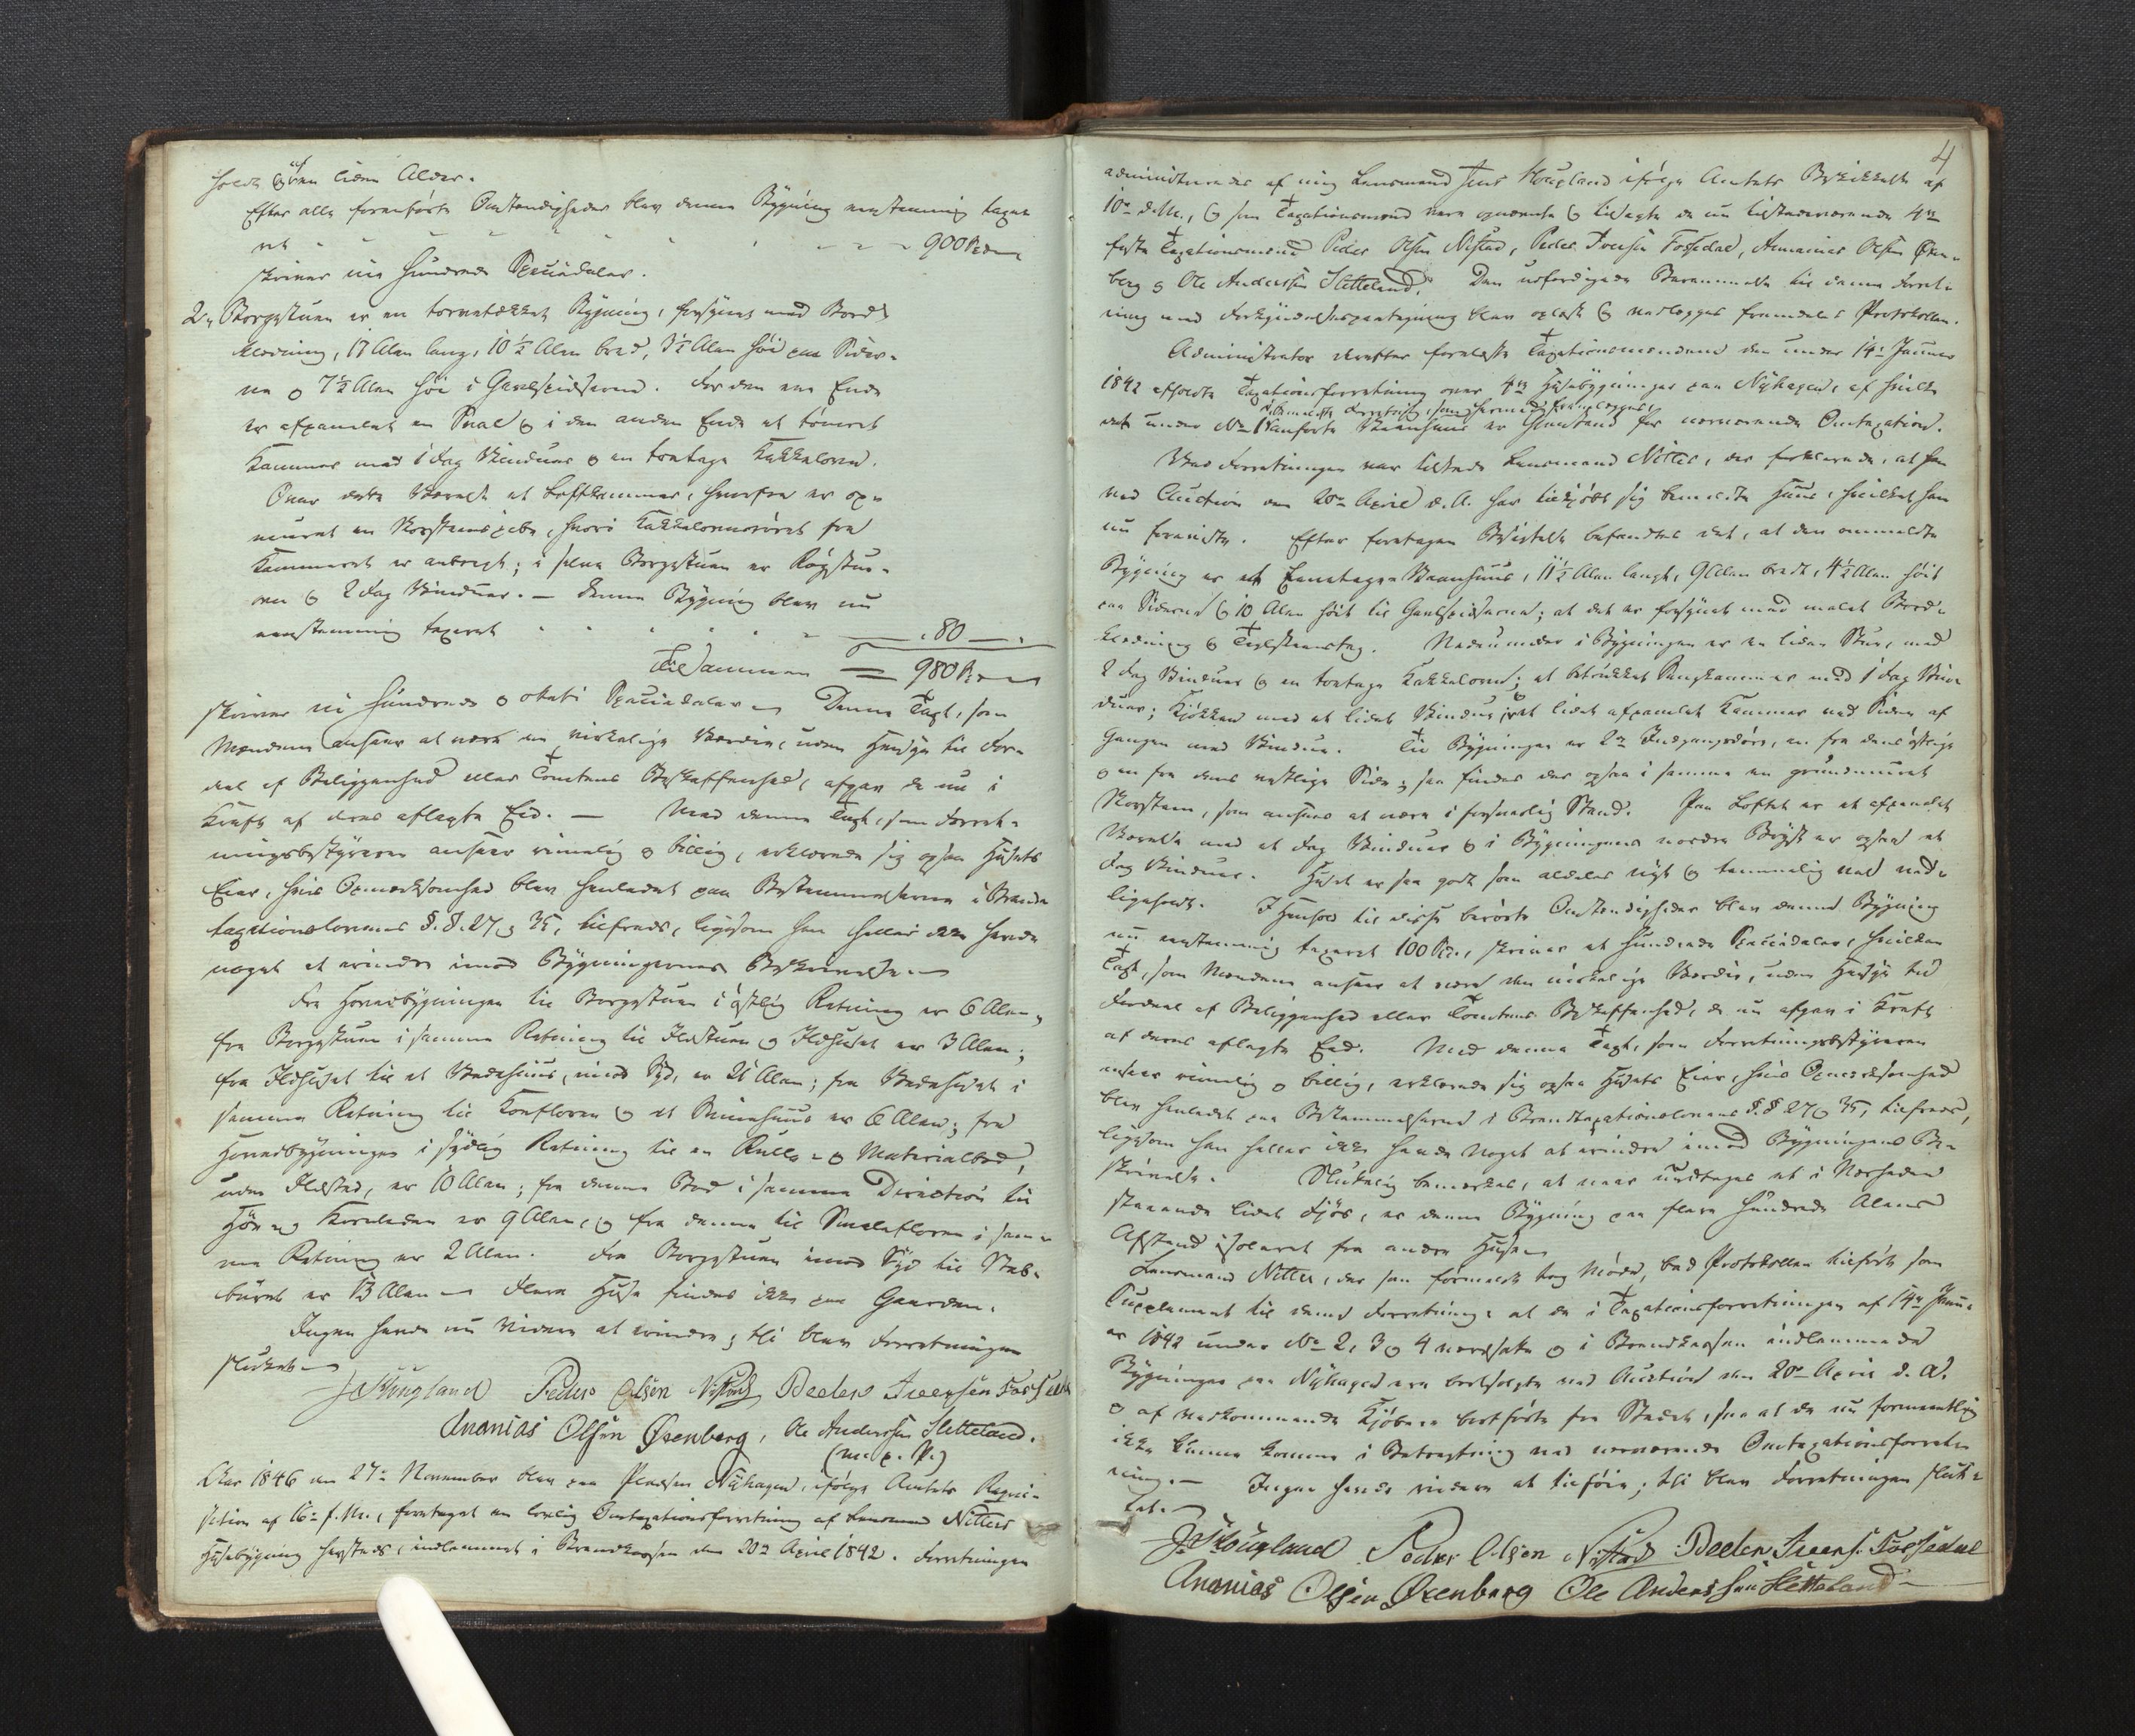 holdt og af liden Alder.
Efter alle foranførte Omstændigheder blev denne Bygning eenstemmig taxe-
ret - - - - - - - - 900 Spd.
skriver ni Hundrede Speciedaler.
2, Borgestuen er en torvetækket Bygning, forsynet med Bord-
klædning, 17 Alen lang, 10½ Alen bred, 3½ Alen høi paa Sider-
ne og 7½ Alen høi i Gavlspidserne. I den ene Ende
er afpanelet en Sval og i den anden Ende et tømret
Kammer med 1 Fag Vinduer og en toetages Kakkelovn.
Over dette Værelse et Loftkammer, hvorfra er op-
muret en Skorsteenspibe, hvori Kakkelovnsrøret fra
Kammeret er anbragt; i selve Borgestuen er Røgstue-
ovn og 2 Fag Vinduer. — Denne Bygning blev nu
eenstemmig taxeret - - - - - 80 —
Tilsammen = 980 Spd.
skriver ni Hundrede og otteti Speciedaler. Denne Taxt, som
Mændene ansaae at være den virkelige Værdie, uden Hensyn til For-
deel af Beliggenhed eller Tomtens Beskaffenhed, afgav de nu i
Kraft af deres aflagte Eed. — Med denne Taxt, som Forret-
ningsbestyreren ansaae rimelig og billig, erklærede sig ogsaa Husets
Eier, hvis Opmærksomhed blev henledet paa Bestemmelserne i Brand-
taxationslovens §.§. 27 og 35, tilfreds, ligesom han heller ikke havde
noget at erindre imod Bygningernes Beskrivelse.
Fra Hovedbygningen til Borgestuen i østlig Retning er 6 Alen,
fra Borgestuen i samme Retning til Ildstuen og Ildhuset er 3 Alen;
fra Ildhuset til et Vedehuus, imod Syd, er 21 Alen; fra Vedehuset i
samme Retning til Koefloren og et Sviinehuus er 6 Alen; fra
Hovedbygningen i sydlig Retning til en Rulle- og Materialbod,
uden Ildsted, er 10 Alen; fra denne Bod i samme Direction til
Høe- og Kornladen er 9 Alen, og fra denne til Smalefloren i sam-
me Retning er 2 Alen. Fra Borgestuen imod Syd til Stab-
buret er 13 Alen. Flere Huse findes ikke paa Gaarden.
Ingen havde nu videre at erindre; thi blev Forretningen
sluttet.
J. Hougland Peder Olsen Nistad Peder Iversen Fossedal
Ananias Olsen Øxenberg, Ole Anderssen Sletteland.
(m. p. P.)
Aar 1846 den 27de November blev paa Pladsen Nyhagen, ifølge Amtets Reqvi-
sition af 16de f. M., foretaget en lovlig Omtaxationsforretning af Lensmand Nitters
Huusbygning sammesteds, indlemmet i Brandkassen den 20de April 1842. Forretningen
4
administreredes af mig Lensmand Jens Hougland ifølge Amtets Beskikkelse af
10de d. M., og som Taxationsmænd vare opnævnte og tilsagte de nu tilstedeværende 4re
faste Taxationsmænd Peder Olsen Nistad, Peder Iversen Fossedal, Annanias Olsen Øxen-
berg og Ole Anderssen Sletteland. Den udfærdigede Berammelse til denne Forret-
ning med Forkyndelsespaategning blev oplæst og vedlægges fremdeles Protokollen.
Administrator derefter forelæste Taxationsmændene den under 14de Januar
1842 afholdte Taxationsforretning over 4re Huusbygninger paa Nyhagen, af hvilke
i bemeldte Forretning, som hermed fremlægges,
det under No 1 anførte Vaaningshuus er Gjenstand for nærværende Omtaxation.
Ved Forretningen var tilstede Lensmand Nitter, der forklarede, at han
ved Auction den 20de April d. A. har tilkjøbt sig bemeldte Huus, hvilket han
nu foreviste. Efter foretagen Besigtelse befandtes det, at den ommeldte
Bygning er et Eenetages Vaanhuus, 11½ Alen langt, 9 Alen bredt, 4½ Alen høit
paa Siderne og 10 Alen høit til Gavlspidserne; at det er forsynet med malet Bord-
klædning og Teglsteenstag. Nedenunder i Bygningen er en liden Stue, med
2 Fag Vinduer og en toetages Kakkelovn; et betrukket Sengkammer med 1 Fag Vin-
duer; Kjøkken med et lidet Vindue og et lidet afpanelet Kammer ved Siden af
Gangen med Vindue. Til Bygningen er 2de Indgangsdøre, en fra dens østlige
og en fra dens vestlige Side, saa findes der ogsaa i samme en grundmuret
Skorsteen, som ansees at være i forsvarlig Stand. Paa Loftet er et afpanelet
Værelse med et Fag Vinduer og i Bygningens nordre Bryst er ogsaa et
Fag Vinduer. Huset er saa godt som aldeles nyt og temmelig vel ved-
ligeholdt. I Henhold til disse berørte Omstændigheder blev denne Bygning
nu eenstemmig taxeret 100 Spd., skriver et Hundrede Speciedaler, hvilken
Taxt, som Mændene ansaae at være den virkelige Værdie, uden Hensyn til
Fordeel af Beliggenhed eller Tomtens Beskaffenhed, de nu afgav i Kraft
af deres aflagte Eed. Med denne Taxt, som Forretningsbestyreren
ansaae rimelig og billig, erklærede sig ogsaa Husets Eier, hvis Opmærksomhed
blev henledet paa Bestemmelserne i Brandtaxationslovens §.§. 27 og 35, tilfreds,
ligesom han heller ikke havde Noget at erindre imod Bygningens Be-
skrivelse. Sluttelig bemærkes, at naar undtages et i Nærheden
staaende lidet Fjøs, er denne Bygning paa flere Hundrede Alens
Afstand isoleret fra andre Huse.
Lensmand Nitter, der som formeldt tog Møde, bad Protokollen tilført som
Supplement til denne Forretning: at de i Taxationsforretningen af 14de Janu-
ar 1842 under No 2, 3 og 4 værdsatte og i Brandkassen indlemmede
Bygninger paa Nyhagen ere bortsolgte ved Auction den 20de April d. A.
og af vedkommende Kjøbere bortførte fra Stedet, saa at de nu formeentlig
ikke kunne komme i Betragtning ved nærværende Omtaxationsforret-
ning. — Ingen havde videre at tilføie; thi blev Forretningen slut-
tet.
J. Hougland Peder Olsen Nistad Peder Ivers. Fossedal
Ananias Olsen Øxenberg Ole Anderssen Sletteland